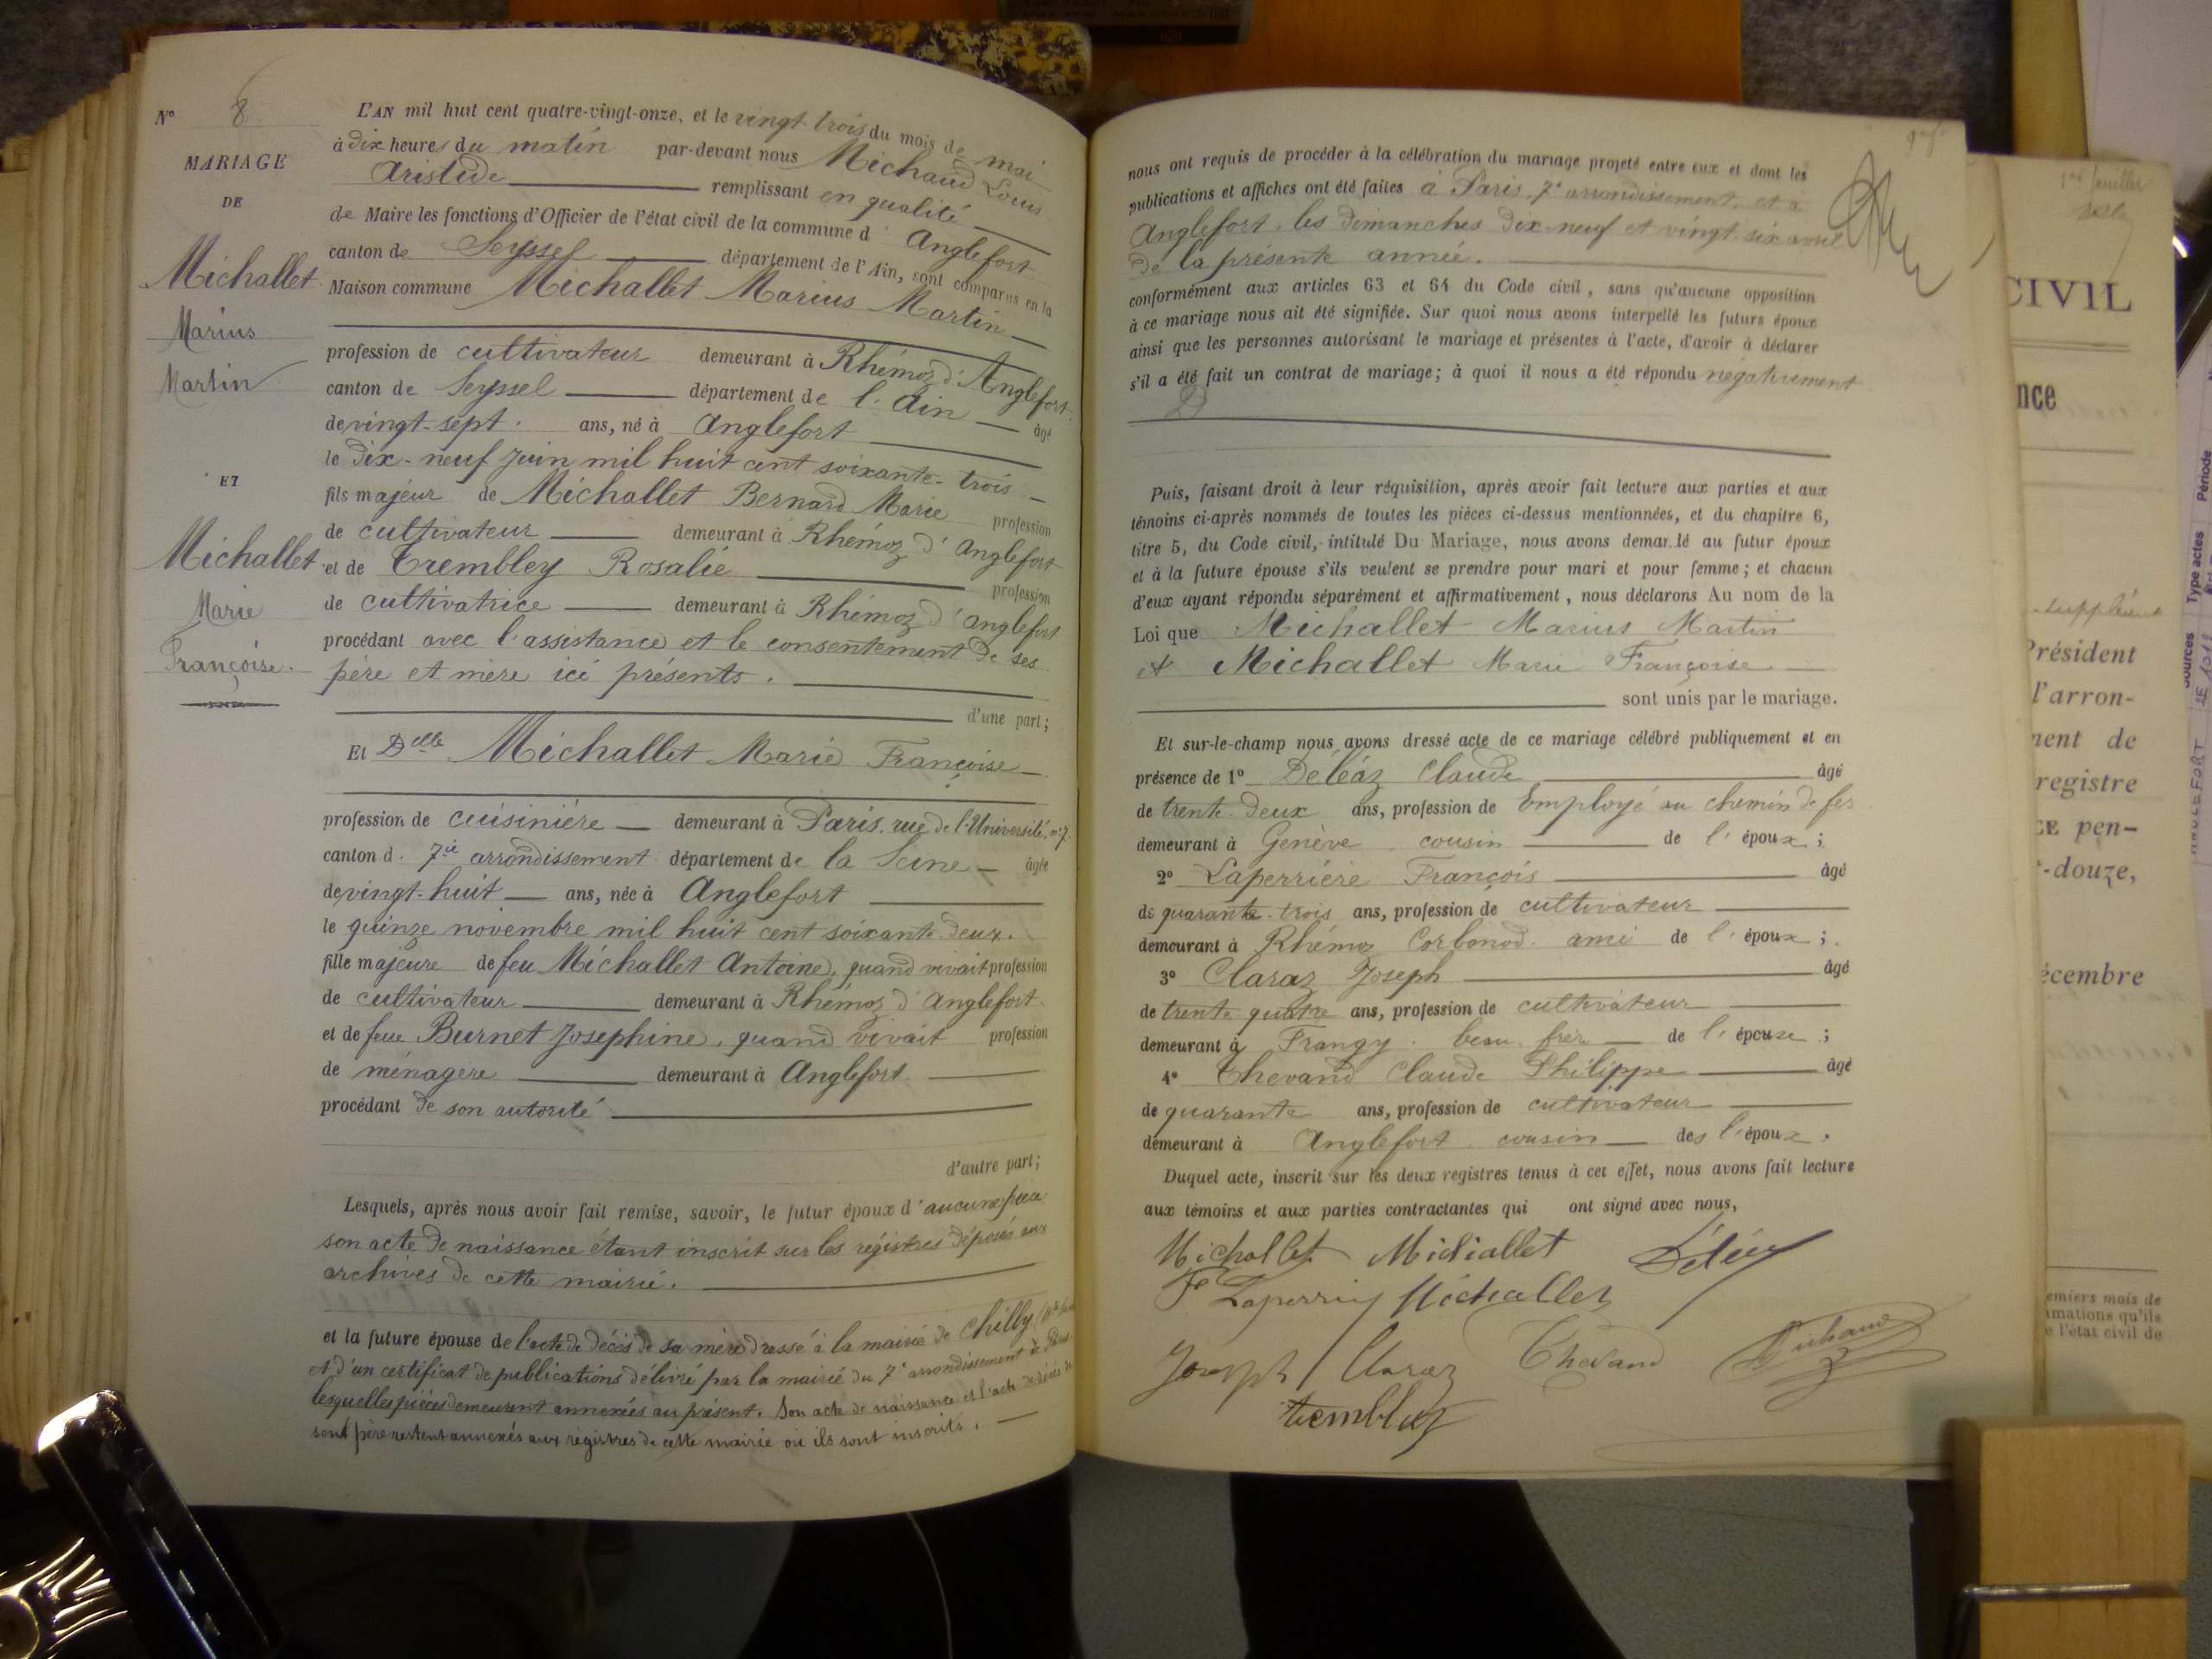 N° 8
MARIAGE
DE
Michallet
Marius
Martin
ET
Michallet
Marie
Françoise.
L'AN mil huit cent quatre-vingt-onze, et le vingt-trois du mois de mai
à dix heures du matin par-devant nous Michaud Louis
Aristide remplissant en qualité
de Maire les fonctions d'Officier de l'état civil de la commune d'Anglefort
canton de Seyssel département de l'Ain, sont comparus en la
Maison commune Michallet Marius Martin
profession de cultivateur demeurant à Rhémoz d'Anglefort
canton de Seyssel département de l'Ain âgé
de vingt-sept ans, né à Anglefort
le dix-neuf juin mil huit cent soixante-trois
fils majeur de Michallet Bernard Marie profession
de cultivateur demeurant à Rhémoz d'Anglefort
et de Trembley Rosalie profession
de cultivatrice demeurant à Rhémoz d'Anglefort
procédant avec l'assistance et le consentement de ses
père et mère ici présents.
d'une part;
Et Delle Michallet Marie Françoise
profession de cuisinière demeurant à Paris, rue de l'Université, n° 7.
canton d. 7ie arrondissement département de la Seine âgée
de vingt-huit ans, née à Anglefort
le quinze novembre mil huit cent soixante-deux.
fille majeure de feu Michallet Antoine, quand vivait profession
de cultivateur demeurant à Rhémoz d'Anglefort
et de feue Burnet Josephine, quand vivait profession
de ménagère demeurant à Anglefort.
procédant de son autorité
d'autre part;
Lesquels, après nous avoir fait remise, savoir, le futur époux d'aucune pièce
son acte de naissance étant inscrit sur les régistres déposés aux
archives de cette mairie.
et la future épouse de l'acte de décès de sa mère dressé à la mairie de Chilly
et d'un certificat de publications délivré par la mairie du 7e arrondissement de Paris
lesquelles pièces demeurent annexées au présent. Son acte de naissance et l'acte de décès de
son père restent annexés aux régistres de cette mairie où ils sont inscrits.
nous ont requis de procéder à la célébration du mariage projeté entre eux et dont les
publications et affiches ont été faites à Paris, 7e arrondissement, et à
Anglefort, les dimanches dix-neuf et vingt-six avril
de la présente année.
conformément aux articles 63 et 64 du Code civil, sans qu'aucune opposition
à ce mariage nous ait été signifiée. Sur quoi nous avons interpellé les futurs époux
ainsi que les personnes autorisant le mariage et présentes à l'acte, d'avoir à déclarer
s'il a été fait un contrat de mariage; à quoi il nous a été répondu négativement
Puis, faisant droit à leur réquisition, après avoir fait lecture aux parties et aux
témoins ci-après nommés de toutes les pièces ci-dessus mentionnées, et du chapitre 6,
titre 5, du Code civil, intitulé Du Mariage, nous avons demandé au futur époux
et à la future épouse s'ils veulent se prendre pour mari et pour femme; et chacun
d'eux ayant répondu séparément et affirmativement, nous déclarons Au nom de la
Loi que Michallet Marius Martin
et Michallet Marie Françoise
sont unis par le mariage.
Et sur-le-champ nous avons dressé acte de ce mariage célébré publiquement et en
présence de 1° Deléaz Claude âgé
de trente-deux ans, profession de Employé au chemin de fer
demeurant à Genève cousin de l'époux;
2° Laperrière François âgé
de quarante-trois ans, profession de cultivateur
demeurant à Rhémoz Corbonod ami de l'époux;
3° Claraz Joseph âgé
de trente quatre ans, profession de cultivateur
demeurant à Frangy beau-frère de l'épouse;
4° Thevand Claude Philippe âgé
de quarante ans, profession de cultivateur
demeurant à Anglefort cousin des l'époux.
Duquel acte, inscrit sur les deux registres tenus à cet effet, nous avons fait lecture
aux témoins et aux parties contractantes qui ont signé avec nous,
Michallet Michallet Déléaz
Michallet
Joseph Claraz Thevand Michaud
Trembley
1er feuillet
CIVIL
nce
suppléant
Président
l'arron-
ment de
registre
CE pen-
-douze,
écembre
emiers mois de
mations qu'ils
e l'état civil de
Sources Type actes Période